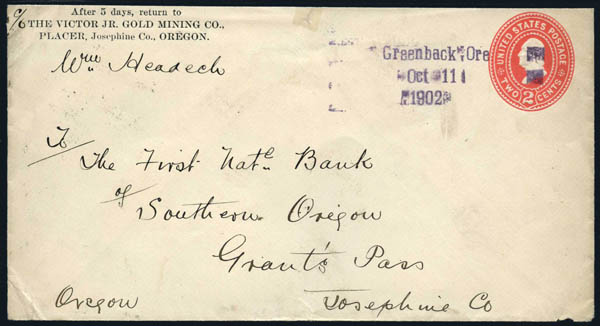 After 5 days, return to
c/o THE VICTOR JR. GOLD MINING CO.,
PLACER, Josephine Co., OREGON.
Wm Headech
Greenback, Ore
Oct 11
1902
UNITED STATES POSTAGE
TWO 2 CENTS
To
The First Natl. Bank
of
Southern Oregon
Grant's Pass
Oregon Josephine Co